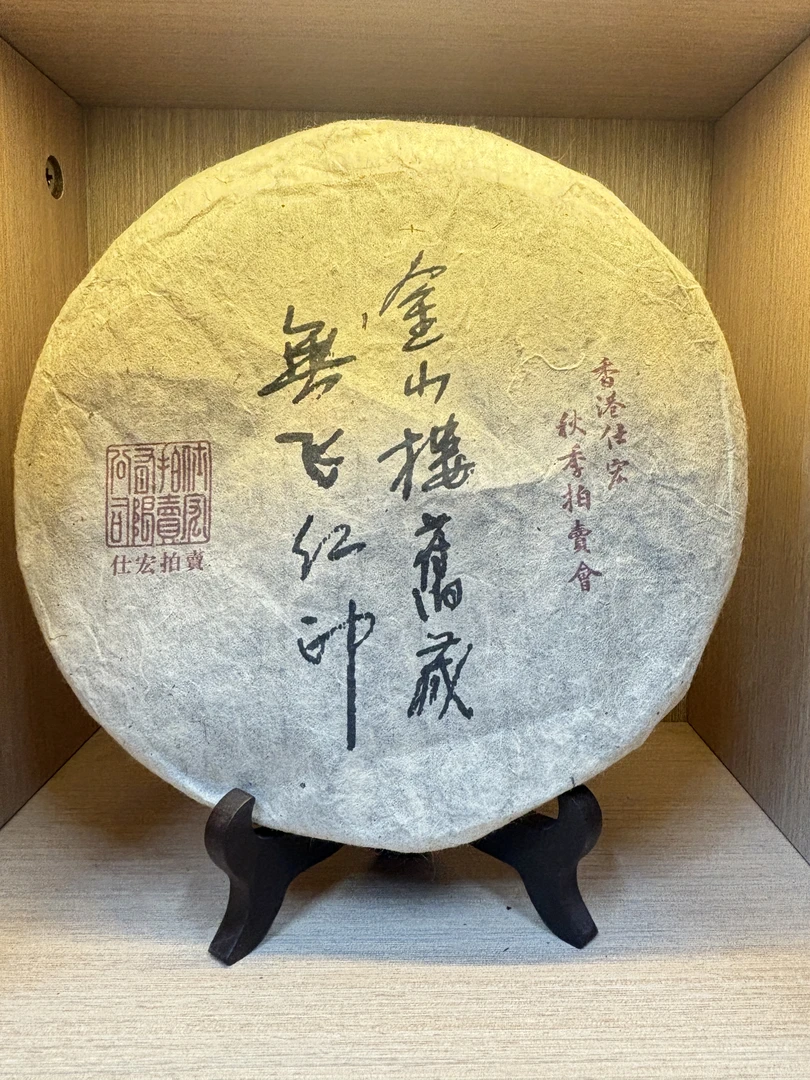 香港仕宏
秋季拍賣會
金山樓舊藏
無飞红印
仕宏拍賣有限公司
仕宏拍賣